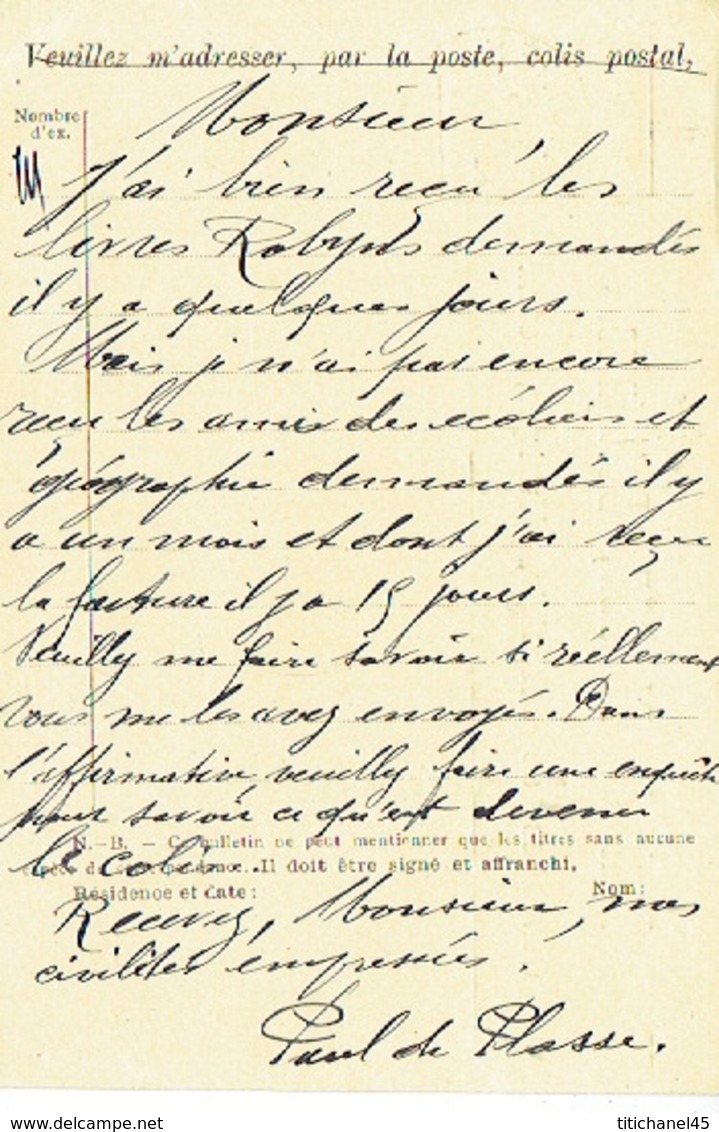 Veuillez m'adresser, par la poste, colis postal,
Nombre
d'ex.
Monsieur
J'ai bien reçu les
livres Robyns demandés
il y a quelques jours.
Mais je n'ai pas encore
reçu les amis des écoliers et
géographie demandés il y
a un mois et dont j'ai reçu
la facture il y a 15 jours.
Veuillez me faire savoir si réellement
vous me les avez envoyés. Dans
l'affirmative, veuillez faire une enquête
pour savoir ce qu'est devenu
N.-B. — Ce bulletin ne peut mentionner que les titres sans aucune
le colis.
Il doit être signé et affranchi.
Résidence et date :
Nom :
Recevez, Monsieur, mes
civilités empressées.
Paul de Plasse.
www.delcampe.net
titichanel45